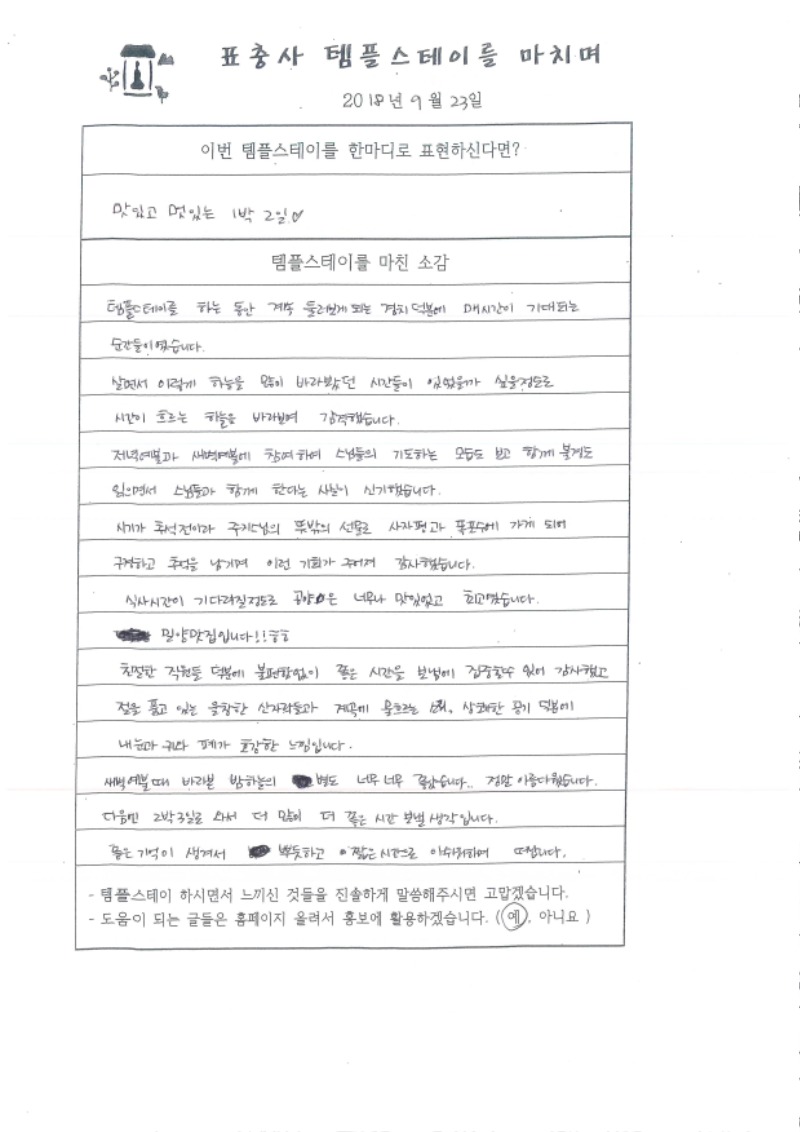 표충사 템플스테이를 마치며
2018년 9월 23일
이번 템플스테이를 한마디로 표현하신다면?
맛있고 멋있는 1박 2일♡
템플스테이를 마친 소감
템플스테이를 하는 동안 계속 둘러보게 되는 경치 덕분에 매시간이 기대되는
순간들이였습니다.
살면서 이렇게 하늘을 많이 바라봤던 시간들이 있었을까 싶을정도로
시간이 흐르는 하늘을 바라보며 감격했습니다.
저녁예불과 새벽예불에 참여하여 스님들의 기도하는 모습도 보고 함께 불경도
읽으면서 스님들과 함께 한다는 사실이 신기했습니다.
시기가 추석전이라 주지스님의 뜻밖의 선물로 사자평과 폭포수에 가게 되어
구경하고 추억을 남기며 이런 기회가 주어져 감사했습니다.
식사시간이 기다려질정도로 공양은 너무나 맛있었고 최고였습니다.
밀양맛집입니다!!ㅎㅎ
친절한 직원들 덕분에 불편함없이 좋은 시간을 보냄에 집중할수 있어 감사했고
절을 품고 있는 울창한 산자락들과 계곡에 물흐르는 소리, 상쾌한 공기 덕분에
내 눈과 귀와 폐가 호강한 느낌입니다.
새벽예불때 바라본 밤하늘의 별도 너무 너무 좋았습니다.. 정말 아름다웠습니다.
다음번 2박3일로 와서 더 많이 더 좋은 시간 보낼 생각입니다.
좋은 기억이 생겨서 뿌듯하고 짧은 시간으로 아쉬워하며 떠납니다.
- 템플스테이 하시면서 느끼신 것들을 진솔하게 말씀해주시면 고맙겠습니다.
- 도움이 되는 글들은 홈페이지 올려서 홍보에 활용하겠습니다. (예, 아니요 )